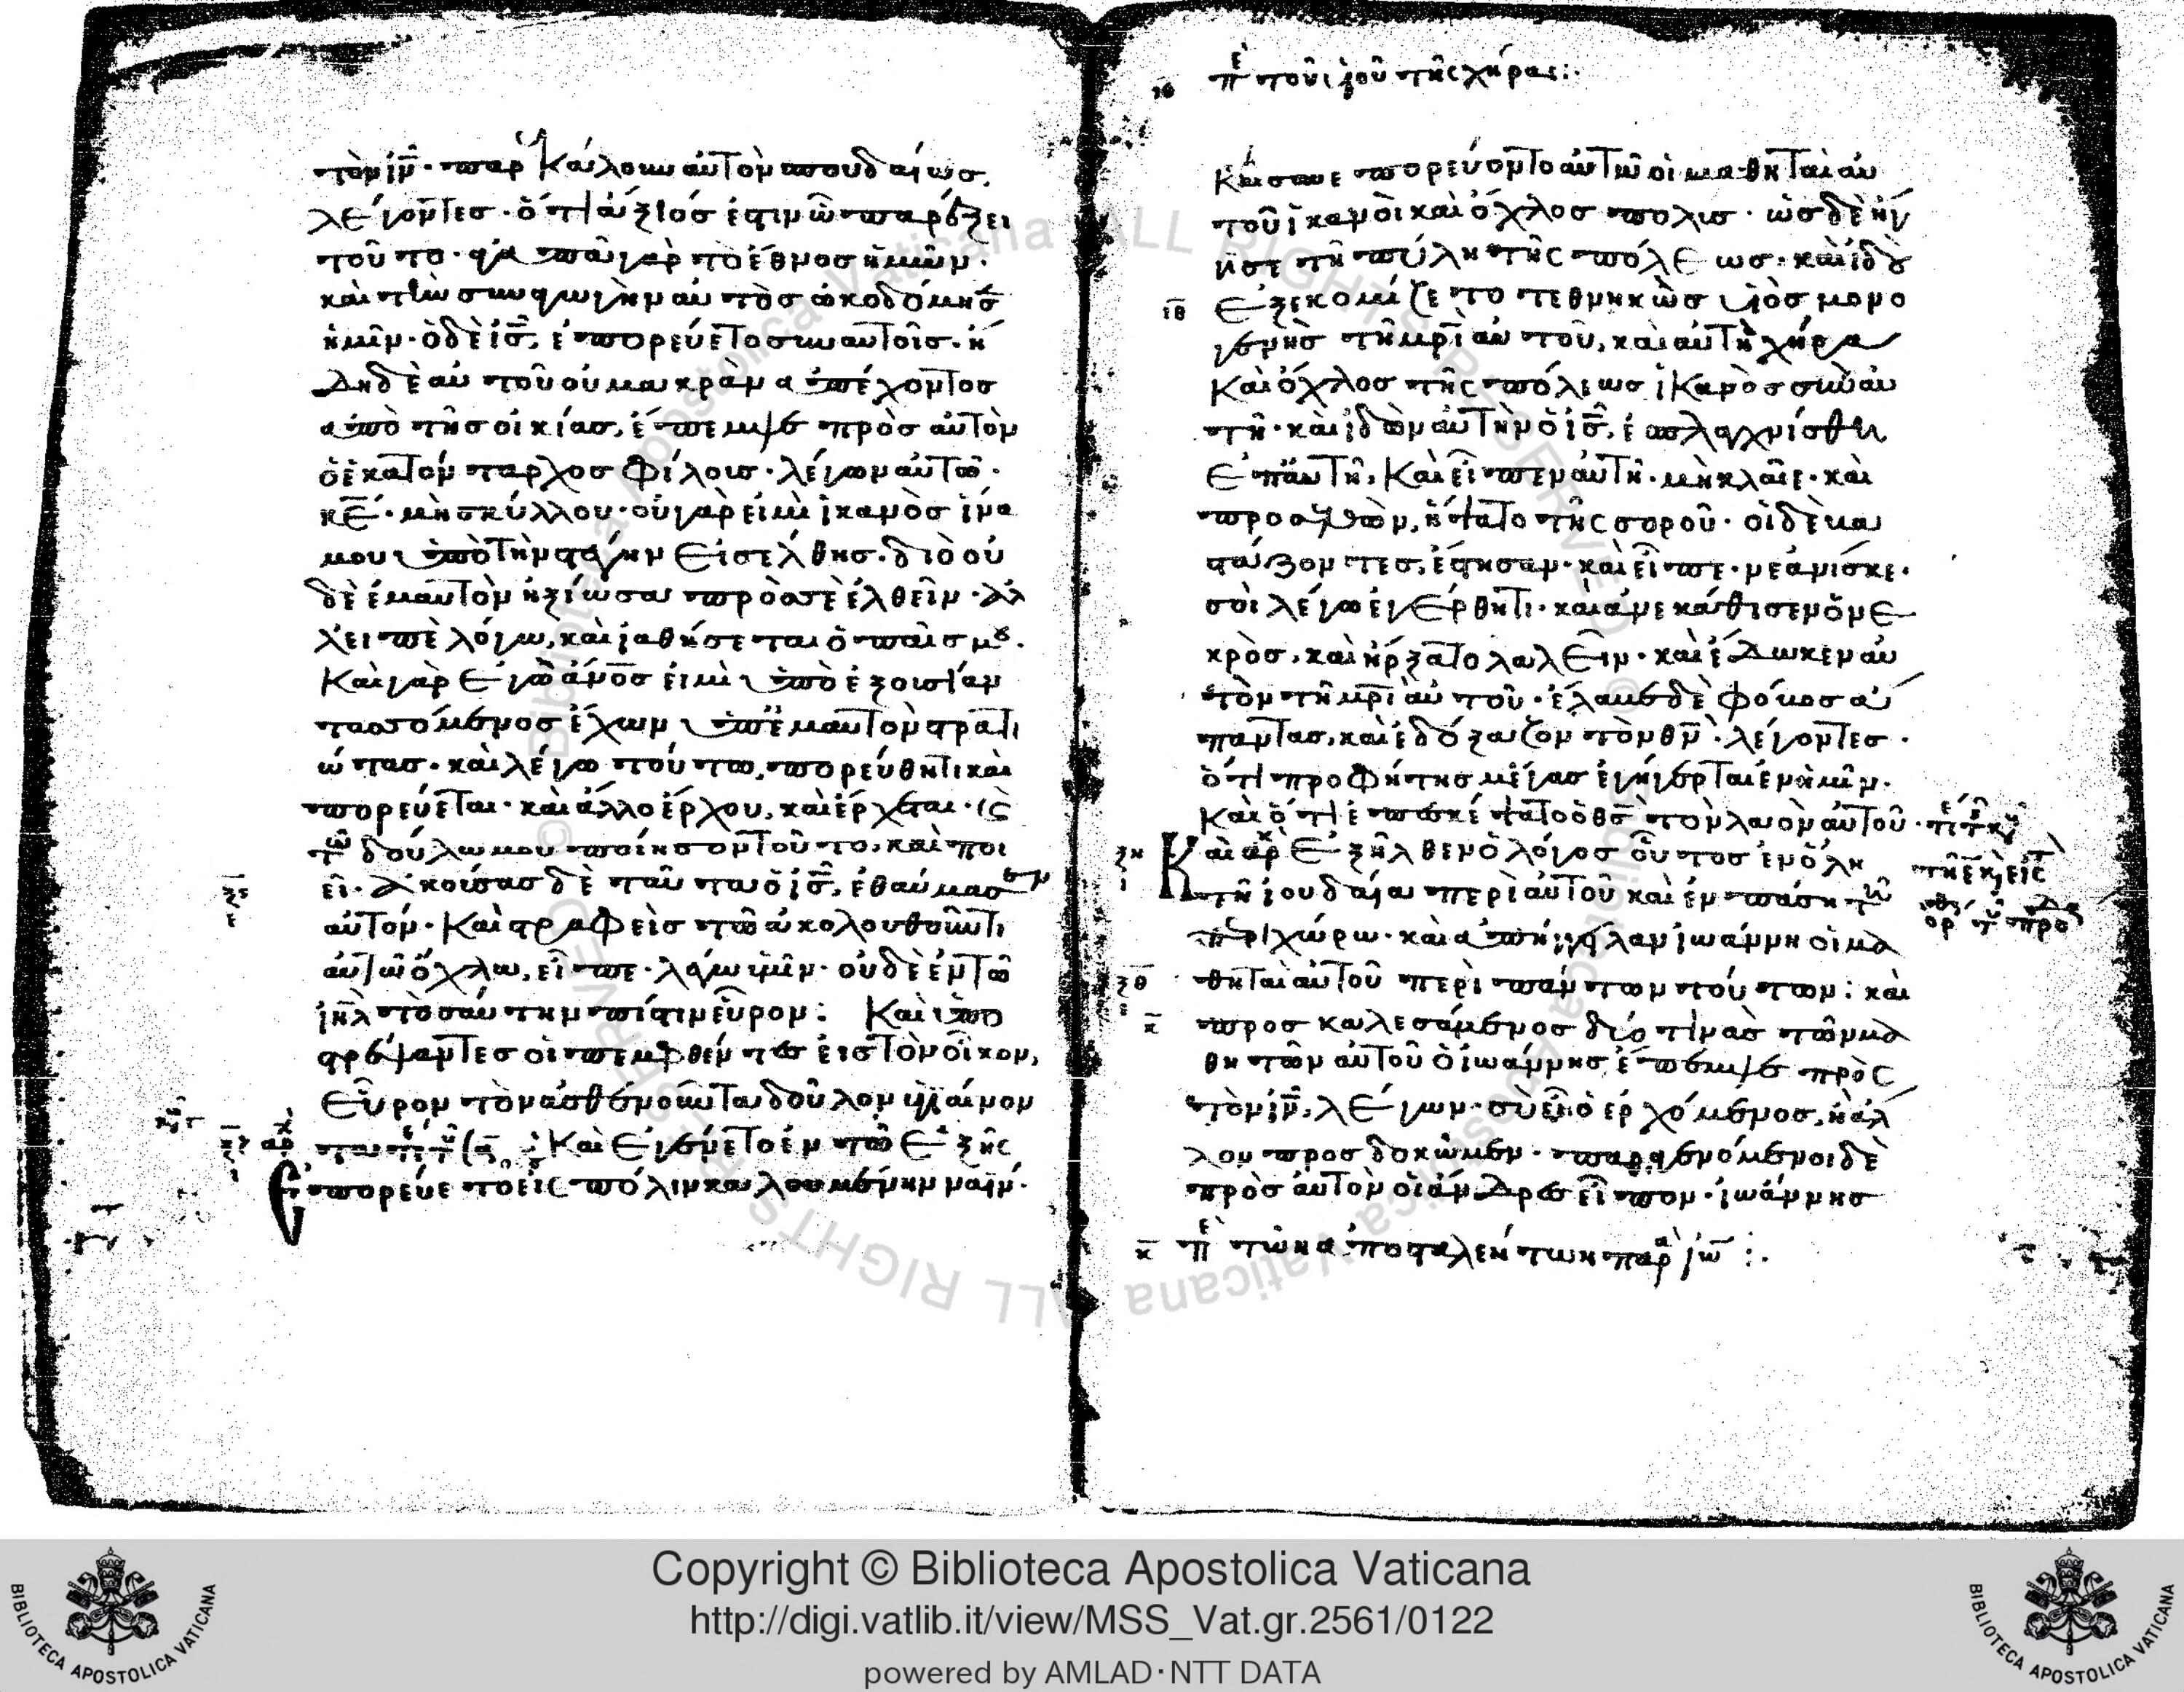 τὸν ἰν̅· παρεκάλουν αὐτὸν σπουδαίως,
λέγοντες· ὅτι ἄξιός ἐστιν ὧ παρέξει
τοῦτο· ἀγαπᾶ γὰρ τὸ ἔθνος ἡμῶν·
καὶ τὴν συναγωγὴν αὐτὸς ὠκοδόμησεν
ἡμῖν· ὁ δὲ ις̅, ἐπορεύετο συν αὐτοῖς· ἤ
δη δὲ αὐτοῦ οὐ μακρὰν ἀπέχοντος
ἀπὸ τῆς οἰκίας, ἔπεμψε πρὸς αὐτὸν
ὁ ἑκατόνταρχος φίλους· λέγων αὐτῶ·
κε̅· μὴ σκύλλου· οὐ γάρ εἰμι ἱκανὸς ἵνα
μου ὑπὸ τὴν στέγην εἰσέλθης· διὸ οὐ
δὲ ἐμαυτὸν ἠξίωσα πρός σε ἐλθεῖν· ἀλ
λ' εἰπὲ λόγω, καὶ ἰαθήσεται ὁ παῖς μου·
Καὶ γὰρ ἐγὼ ἄνος̅ εἰμι ὑπὸ ἐξουσίαν
τασσόμενος ἔχων ὑπ' ἐμαυτὸν στρατι
ώτας· καὶ λέγω τούτω, πορεύθητι καὶ
πορεύεται· καὶ ἄλλο ἔρχου, καὶ ἔρχεται· κς
τῶ δούλω μου ποίησον τοῦτο, καὶ ποι
εῖ· ἀκούσας δὲ ταῦτα ὁ ις̅, ἐθαύμασεν
αὐτόν· Καὶ στραφεὶς τῶ ἀκολουθοῦντι
αὐτῶ ὄχλω, εἶπε· λέγω ὑμῖν· οὐδὲ ἐν τῶ
ιη̅λ τοσαύτην πίστιν εὗρον: Καὶ ὑπο
στρέψαντες οἱ πεμφθέντες εἰς τὸν οἶκον,
εὗρον τὸν ἀσθενοῦντα δοῦλον ὑγιαίνον
τα Καὶ ἐγένετο ἐν τῶ ἑξῆς
ἐπορεύετο εἰς πόλιν καλουμένην ναΐν·
ιθ πε τοῦ υἱοῦ τῆς χήρας:
Καὶ συνεπορεύοντο αὐτῶ οἱ μαθηταὶ αὐ
τοῦ ἱκανοὶ καὶ ὄχλος πολύς· ὡς δὲ ἤγ
γισε τῆ πύλη τῆς πόλεως· καὶ ἰδοὺ
ιθ ἐξεκομίζετο τεθνηκὼς υἱὸς μονο
γενὴς τῆ μρι̅ αὐτοῦ, καὶ αὐτὴ χήρα
Καὶ ὄχλος τῆς πόλεως ἱκανὸς σὺν αὐ
τῆ· καὶ ἰδὼν αὐτὴν ὁ ις̅, ἐσπλαγχνίσθη
ἐπ' αὐτῆ, Καὶ εἶπεν αὐτῆ· μὴ κλαῖε· καὶ
προσελθὼν, ἥψατο τῆς σοροῦ· οἱ δὲ βα
στάζοντες, ἔστησαν· καὶ εἶπε· νεανίσκε·
σοὶ λέγω ἐγέρθητι· καὶ ἀνεκάθισεν ὁ νε
κρὸς, καὶ ἤρξατο λαλεῖν· καὶ ἔδωκεν αὐ
τὸν τῆ μρι̅ αὐτοῦ· ἔλαβε δὲ φόβος ἅ
παντας, καὶ ἐδόξαζον τὸν θν̅· λέγοντες·
ὅτι προφήτης μέγας ἐγήγερται ἐν ἡμῖν·
Καὶ ὅτι ἐπεσκέψατο ὁ θς̅ τὸν λαὸν αὐτοῦ·
ξη Καὶ ἐξῆλθεν ὁ λόγος οὗτος ἐν ὅλη
τῆ ἰουδαία περὶ αὐτοῦ καὶ ἐν πάση τῆ
περιχώρω· καὶ ἀπήγγειλαν ἰωάννη οἱ μα
ξθ θηταὶ αὐτοῦ περὶ πάντων τούτων: καὶ
κ̅ προσκαλεσάμενος δύο τινὰς τῶν μα
θητῶν αὐτοῦ ὁ ἰωάννης ἔπεμψε πρὸς
τὸν ἰν̅, λέγων· σὺ εἶ ὁ ἐρχόμενος, ἢ ἄλ
λον προσδοκῶμεν· παραγενόμενοι δὲ
πρὸς αὐτὸν οἱ ἄνδρες εἶπον· ἰωάννης
κ̅ πε τῶν ἀποσταλέντων παρ ιω̅ :
Copyright © Biblioteca Apostolica Vaticana
http://digi.vatlib.it/view/MSS_Vat.gr.2561/0122
powered by AMLAD·NTT DATA